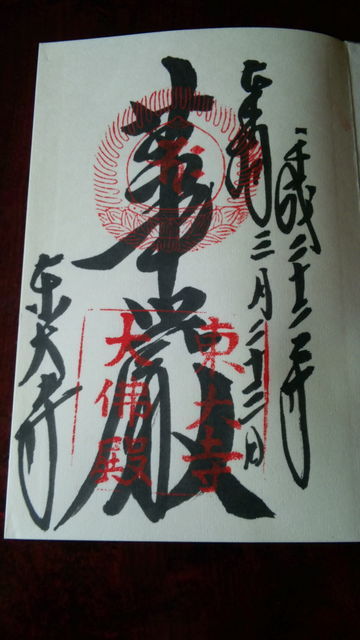 平成二十二年
三月二十二日
奉拝
華厳
東大寺
大佛殿
東大寺